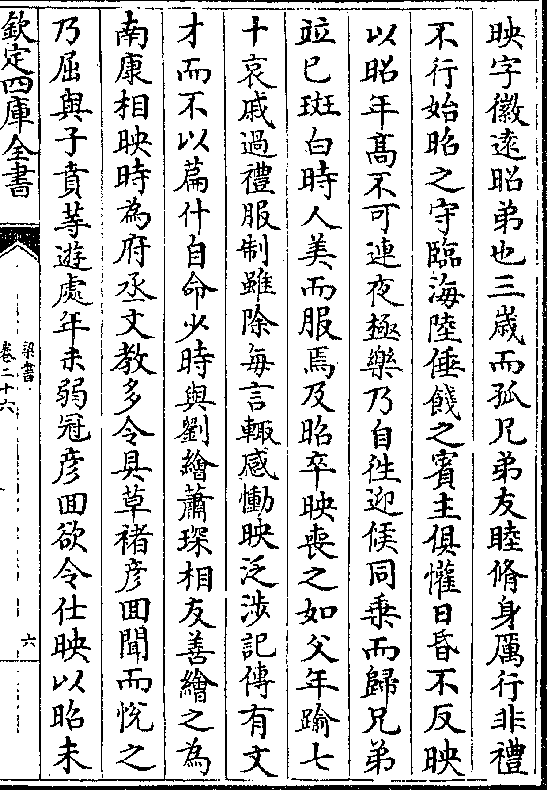 映字徽逺昭弟也三歳而孤兄弟友睦脩身厲行非禮
不行始昭之守臨海陸倕餞之賓主俱懽日昏不反映
以昭年髙不可連夜極樂乃自徃迎候同乗而歸兄弟
竝已斑白時人美而服焉及昭卒映喪之如父年踰七
十哀戚過禮服制雖除每言輙感慟映泛涉記傳有文
才而不以篇什自命少時與劉繪蕭琛相友善繪之為
南康相映時為府丞文教多令具草褚彦回聞而悅之
乃屈與子賁等遊處年未弱冠彦回欲令仕映以昭未
欽定四庫全書
梁書
卷二十六
六